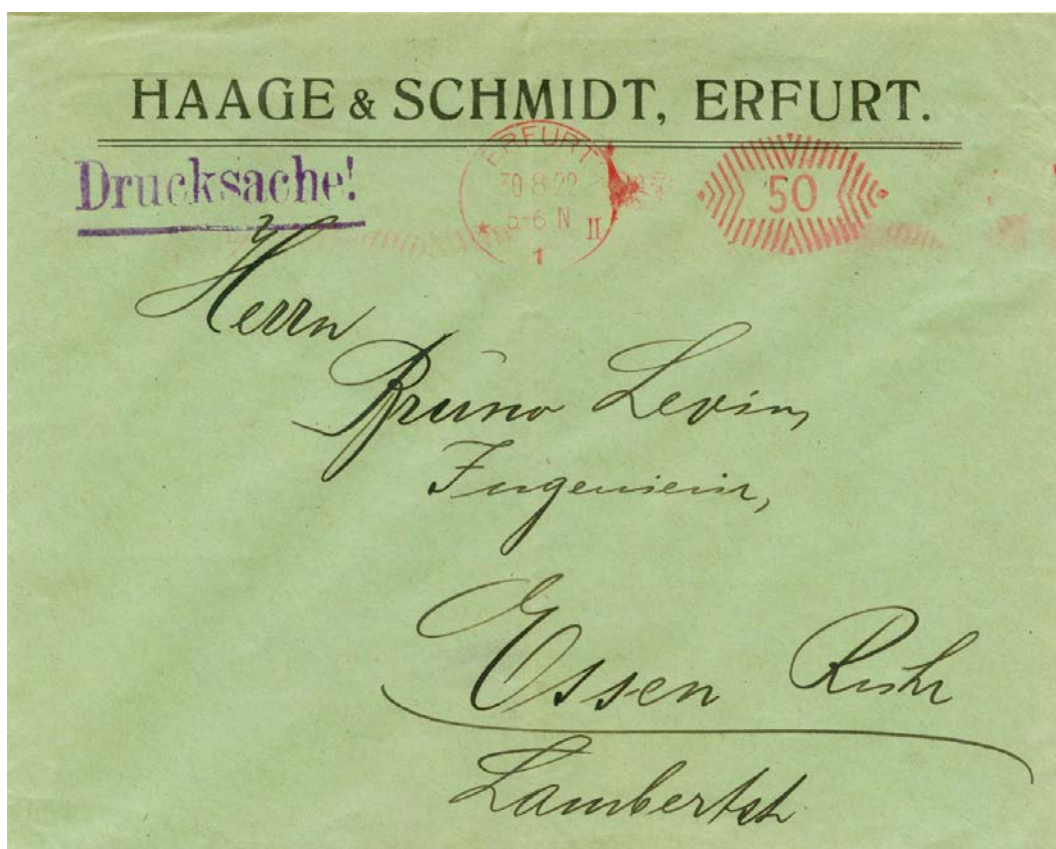 HAAGE & SCHMIDT, ERFURT.
Drucksache!
ERFURT
30.8.22
5-6 N
* II
1
50
Herrn
Bruno Levin,
Ingenieur,
Essen Ruhr
Lambertstr